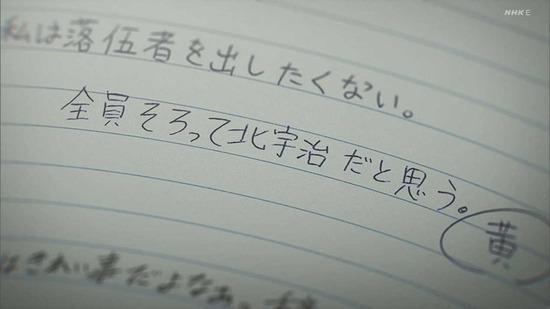 NHK E
私は落伍者を出したくない。
全員そろって北宇治だと思う。
黄
はきれい事だよなぁ。